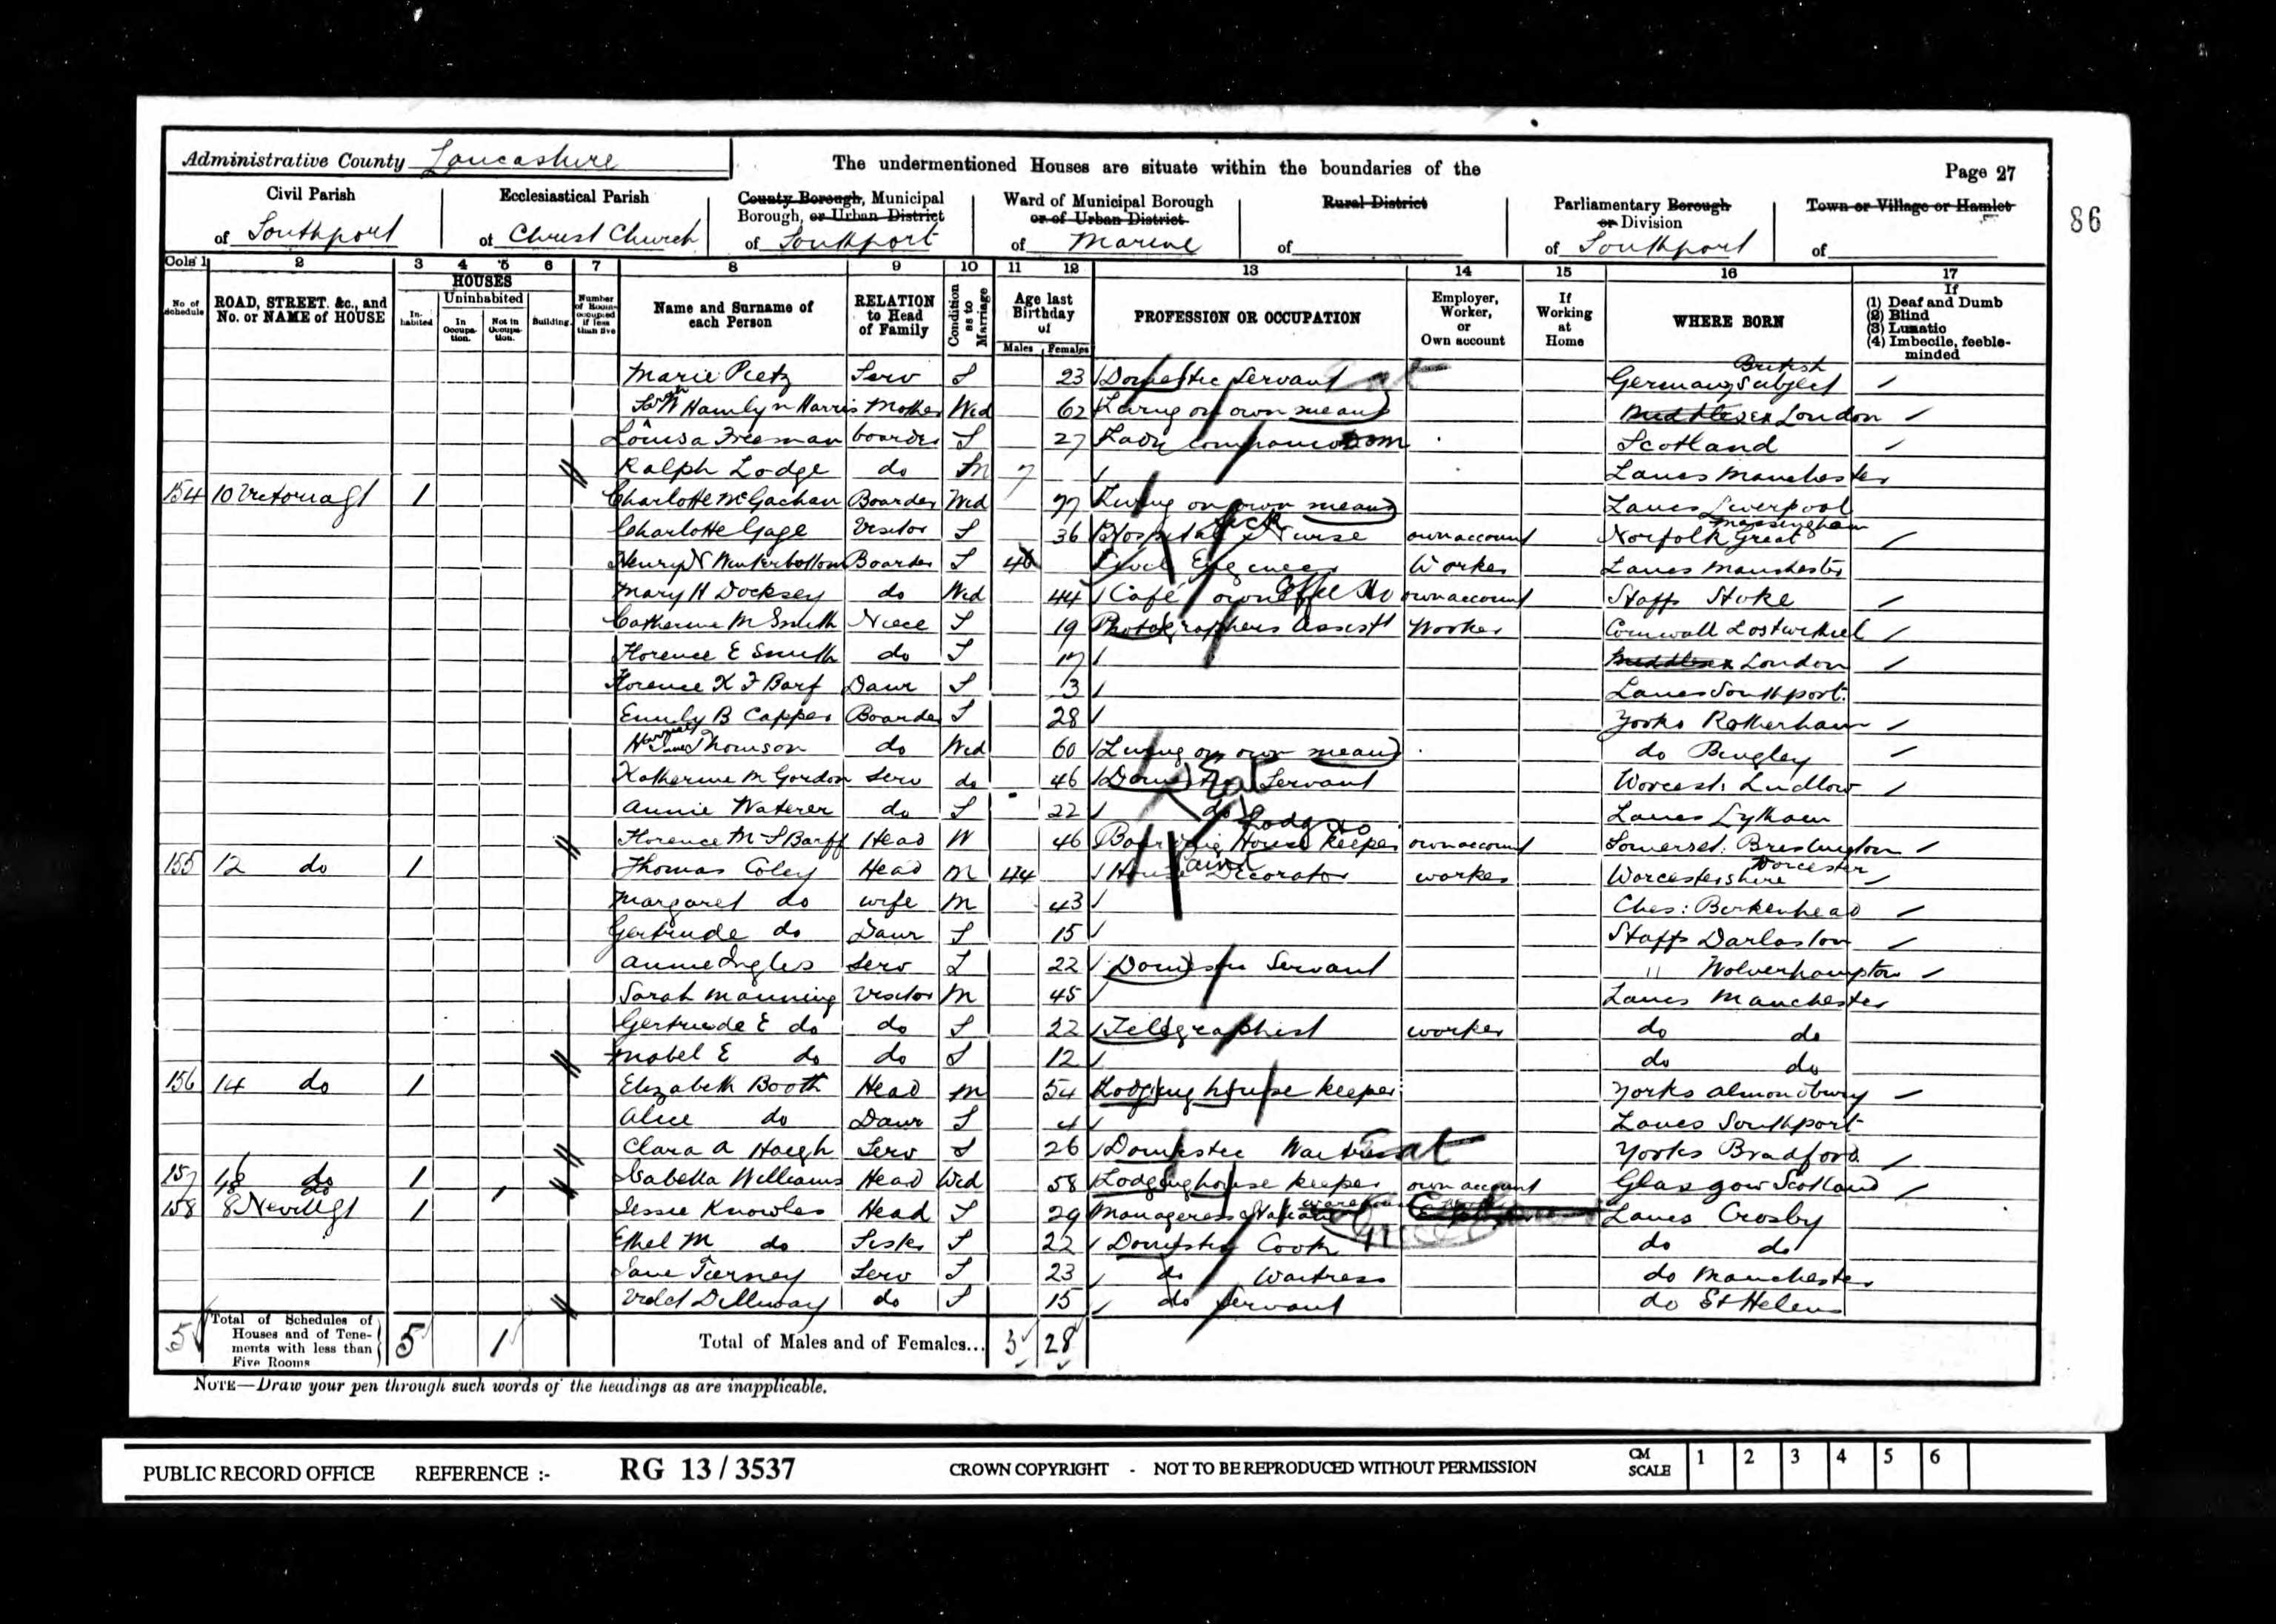 Administrative County Lancashire
The undermentioned Houses are situate within the boundaries of the
Page 27
Civil Parish of Southport
Ecclesiastical Parish of Christ Church
County Borough, Municipal Borough, or Urban District of Southport
Ward of Municipal Borough or of Urban District of Marine
Rural District of
Parliamentary Borough or Division of Southport
Town or Village or Hamlet of
86
Cols 1 2 3 4 5 6 7 8 9 10 11 12 13 14 15 16 17
No of Schedule
ROAD, STREET, &c., and No. or NAME of HOUSE
HOUSES
In-habited
Uninhabited
In Occupa-tion.
Not in Occupa-tion.
Building.
Number of Rooms occupied if less than five
Name and Surname of each Person
RELATION to Head of Family
Condition as to Marriage
Age last Birthday of
Males Females
PROFESSION OR OCCUPATION
Employer, Worker, or Own account
If Working at Home
WHERE BORN
If
(1) Deaf and Dumb
(2) Blind
(3) Lunatic
(4) Imbecile, feeble-minded
Marie Pietz Serv S 23 Domestic Servant Germany British Subject
Hamlyn Harris Mother Wid 62 Living on own means Middlesex London
Louisa Freeman boarder S 27 Lady Companion Dom Scotland
Ralph Lodge do 7 Lancs Manchester
154 10 Victoria St 1 Charlotte McGachan Boarder Wid 77 Living on own means Lancs Liverpool
Charlotte Gage Visitor S 36 Hospital Nurse Sick own account Norfolk Great Massingham
Henry N Winterbottom Boarder S Civil Engineer Worker Lancs Manchester
Mary H Docksey do Wid 44 Café owner own account Staffs Stoke
Catherine M Smith Niece S 19 Photographers Assist Worker Cornwall Lostwithiel
Florence E Smith do S 17 Middlesex London
Florence K F Barf Daur S 3 Lancs Southport
Emily B Capper Boarder S 28 Yorks Rotherham
Thomson do Wid 60 Living on own means do Bingley
Katherine M Gordon Serv do 46 Domestic Servant Worcest: Ludlow
Annie Waterer do S 22 do Lancs Lytham
Florence M F Barff Head W 46 Boarding House Keeper Lodg Ho own account Somerset: Brislington
155 12 do 1 Thomas Coley Head M 44 House Decorator worker Worcestershire Worcester
Margaret do wife M 43 Ches: Birkenhead
Gertrude do Daur S 15 Staffs Darlaston
Annie Ingles Serv S 22 Domestic Servant " Wolverhampton
Sarah Manning Visitor M 45 Lancs Manchester
Gertrude E do do S 22 Telegraphist worker do do
Mabel E do do S 12 do do
156 14 do 1 Elizabeth Booth Head M 54 Lodging house keeper Yorks Almondbury
Alice do Daur S Lancs Southport
Clara A Haigh Serv S 26 Domestic Waitress Yorks Bradford
157 do 1 Isabella Williams Head Wid 58 Lodging house keeper own account Glasgow Scotland
158 8 Nevill St 1 Jessie Knowles Head S 29 Manageress Lancs Crosby
Ethel M do Sister S 22 Domestic Cook do do
Jane Tierney Serv S 23 do Waitress do Manchester
Violet Dillway do S 15 do Servant do St Helens
5 Total of Schedules of Houses and of Tene-ments with less than Five Rooms 5 1 Total of Males and of Females... 3 28
NOTE—Draw your pen through such words of the headings as are inapplicable.
PUBLIC RECORD OFFICE REFERENCE :- RG 13 / 3537 CROWN COPYRIGHT - NOT TO BE REPRODUCED WITHOUT PERMISSION CM SCALE 1 2 3 4 5 6